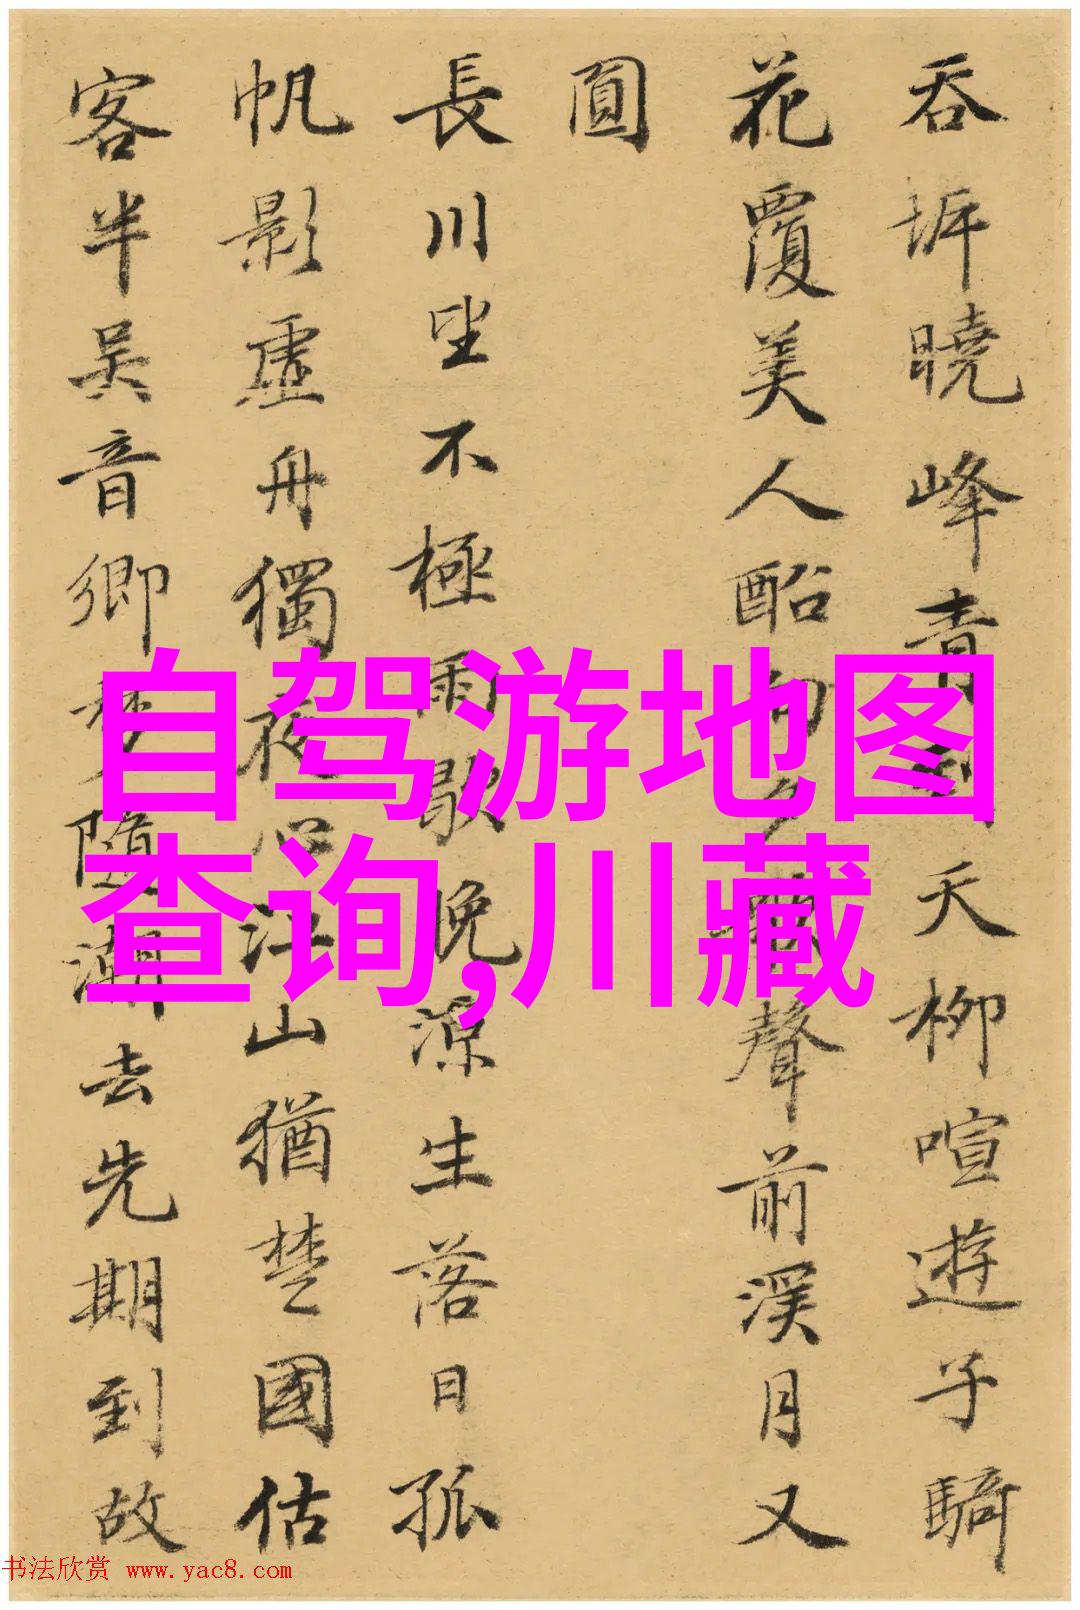 吞坼曉峰青 天柳喧遊子騎
花覆美人酩 聲前溪月又
圓
長川坐不極雨歇晚涼生落日孤
帆影虛舟獨夜心江山猶楚國估
客半吴音鄉夢隨潮去先期到故
自驾游地图
查询,川藏
书法欣赏 www.yac8.com